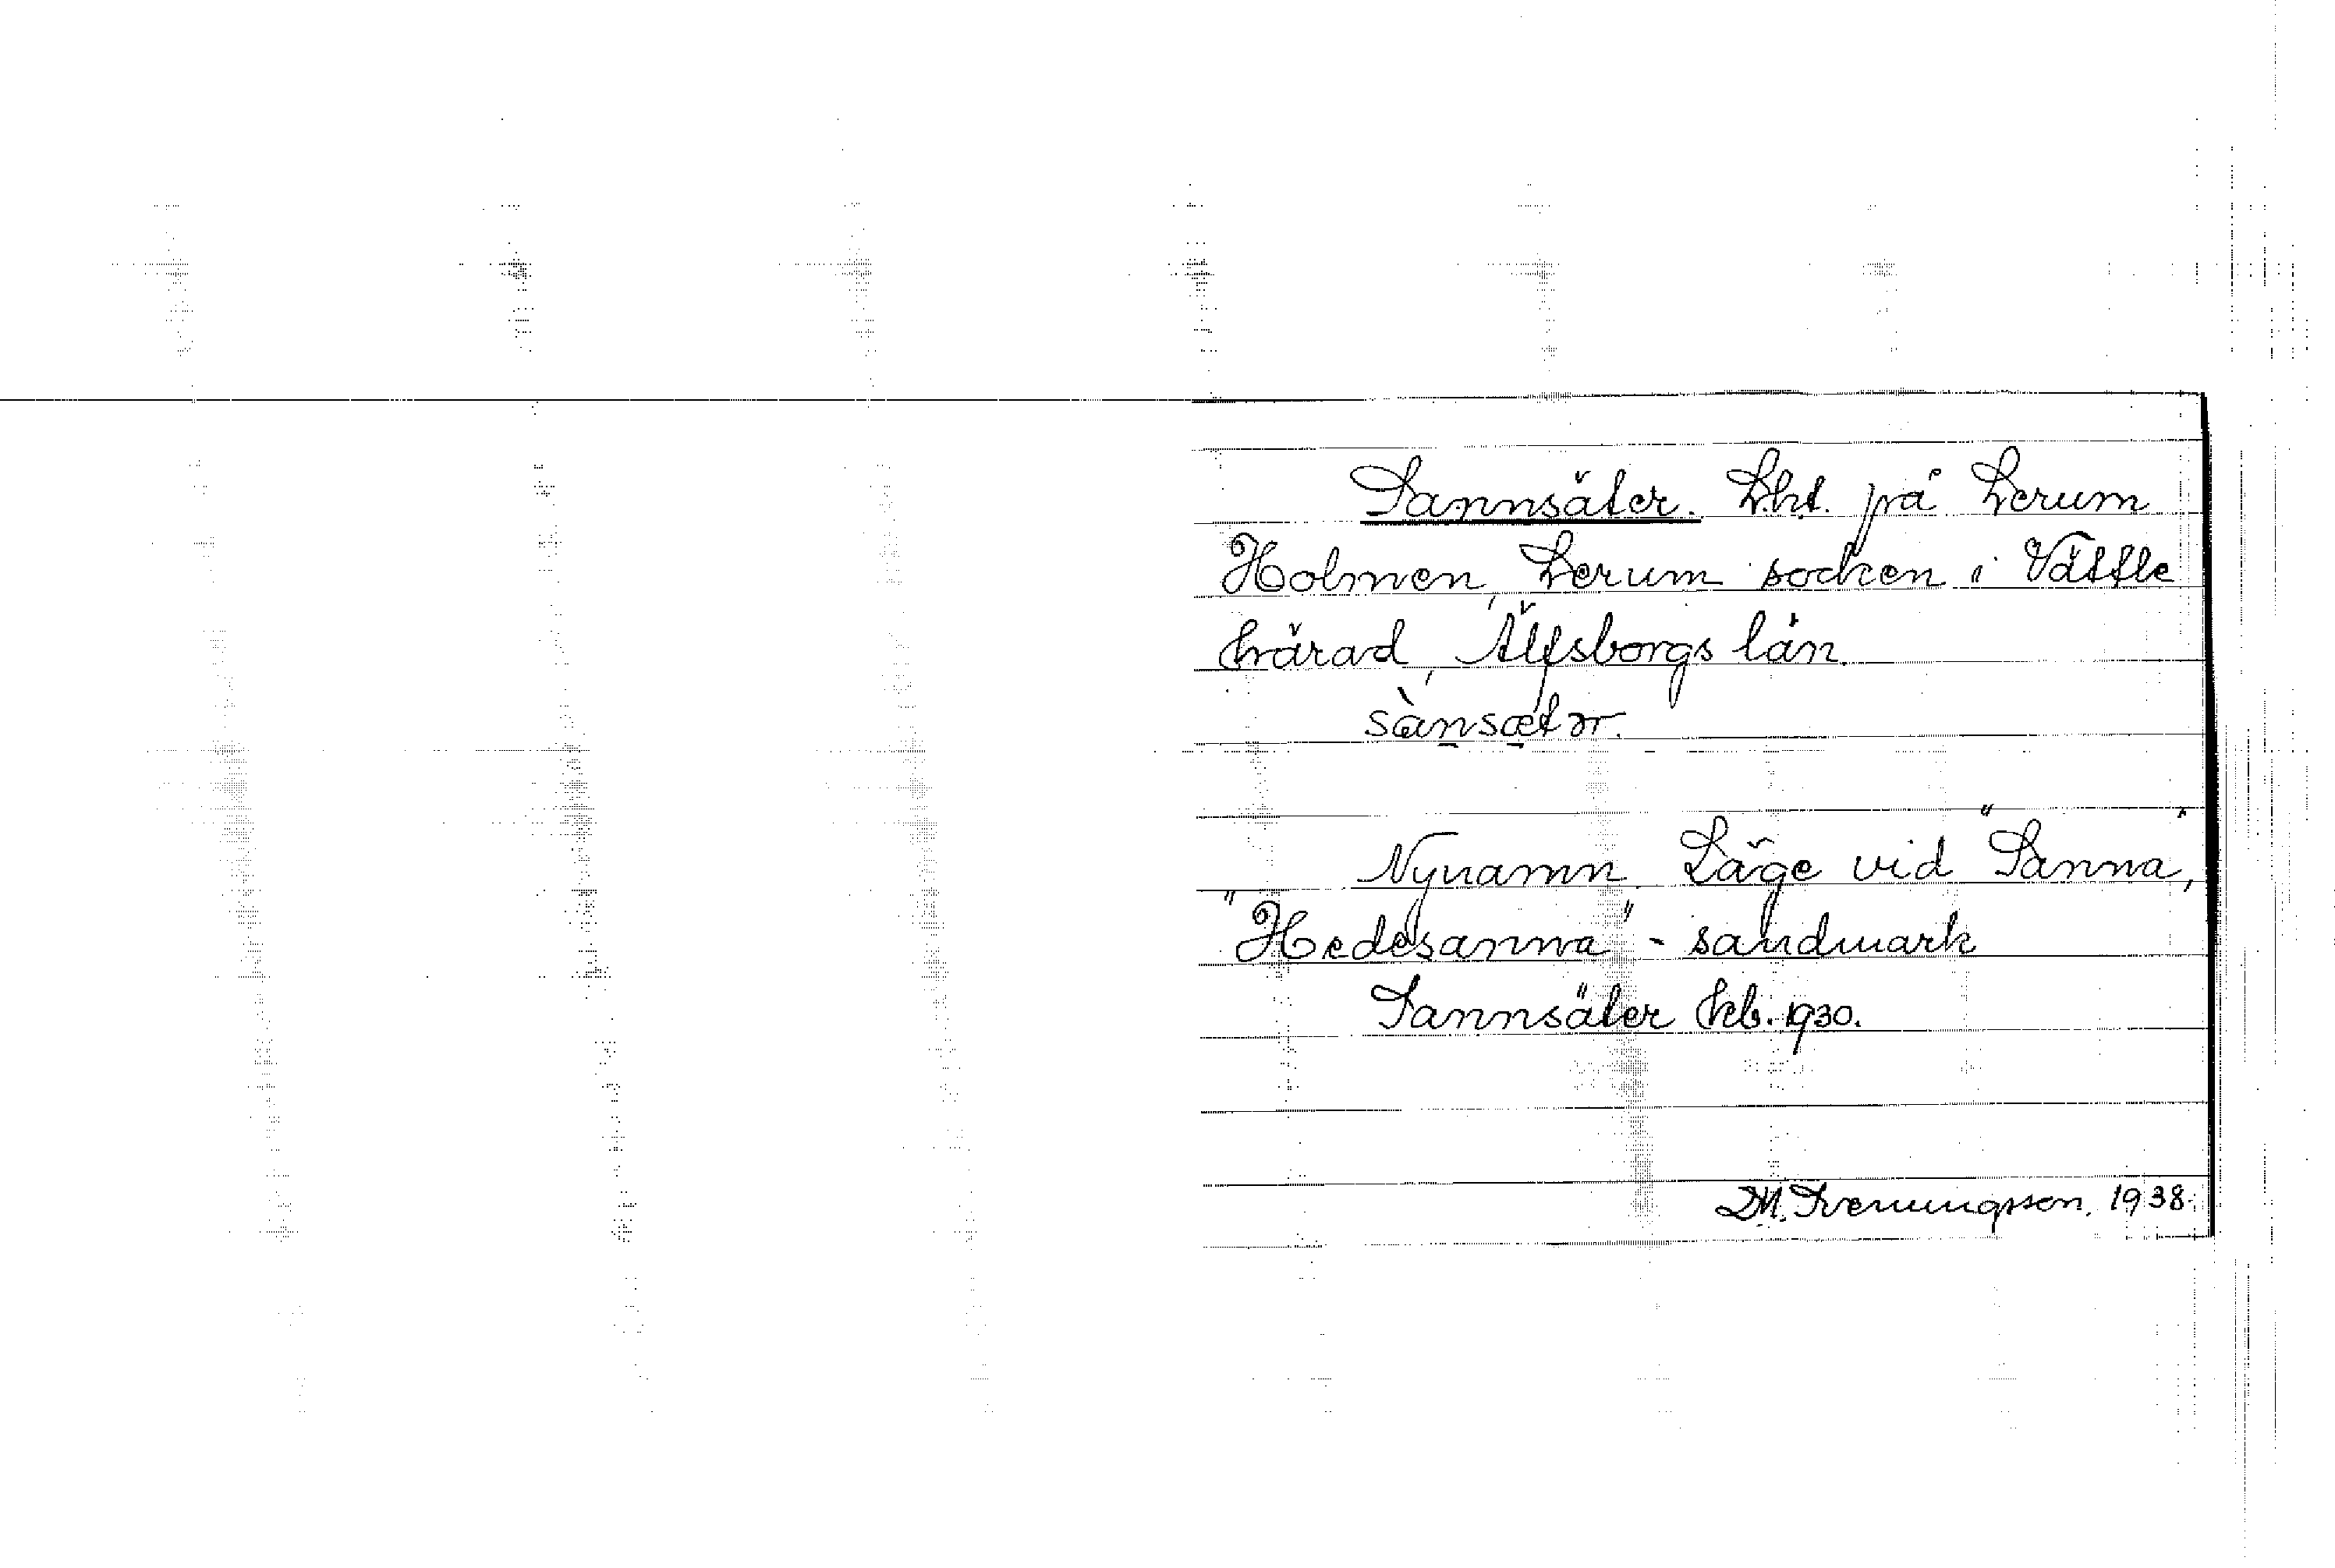 Sannsäter. Lht. på Lerum
Holmen, Lerum socken i Vättle
härad, Älfsborgs län.
sànsætər.
Nynamn. Läge vid "Sanna",
"Hedesanna" - sandmark
Sannsäter kb. 1930.
1938.